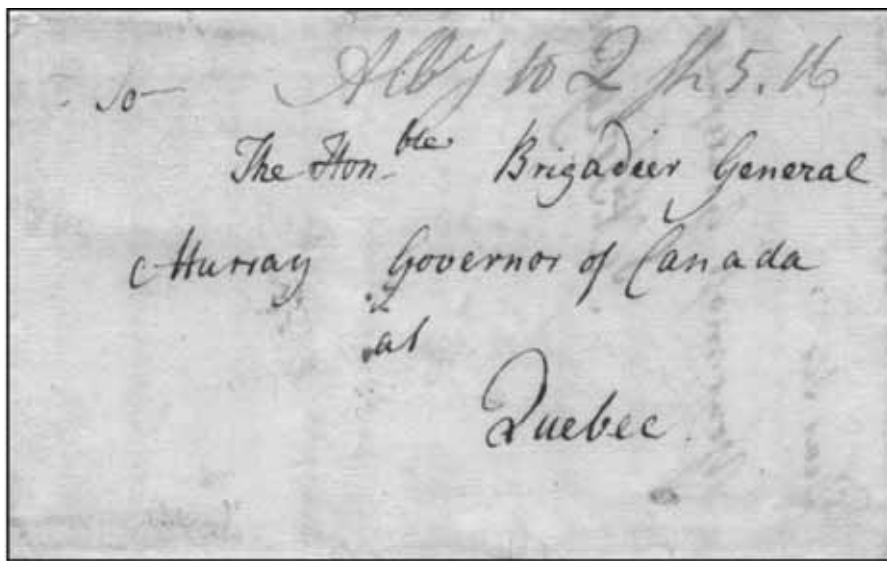 Alby to Q sh 5.16
To
The Hon.ble Brigadier General
Murray Governor of Canada
at
Quebec.